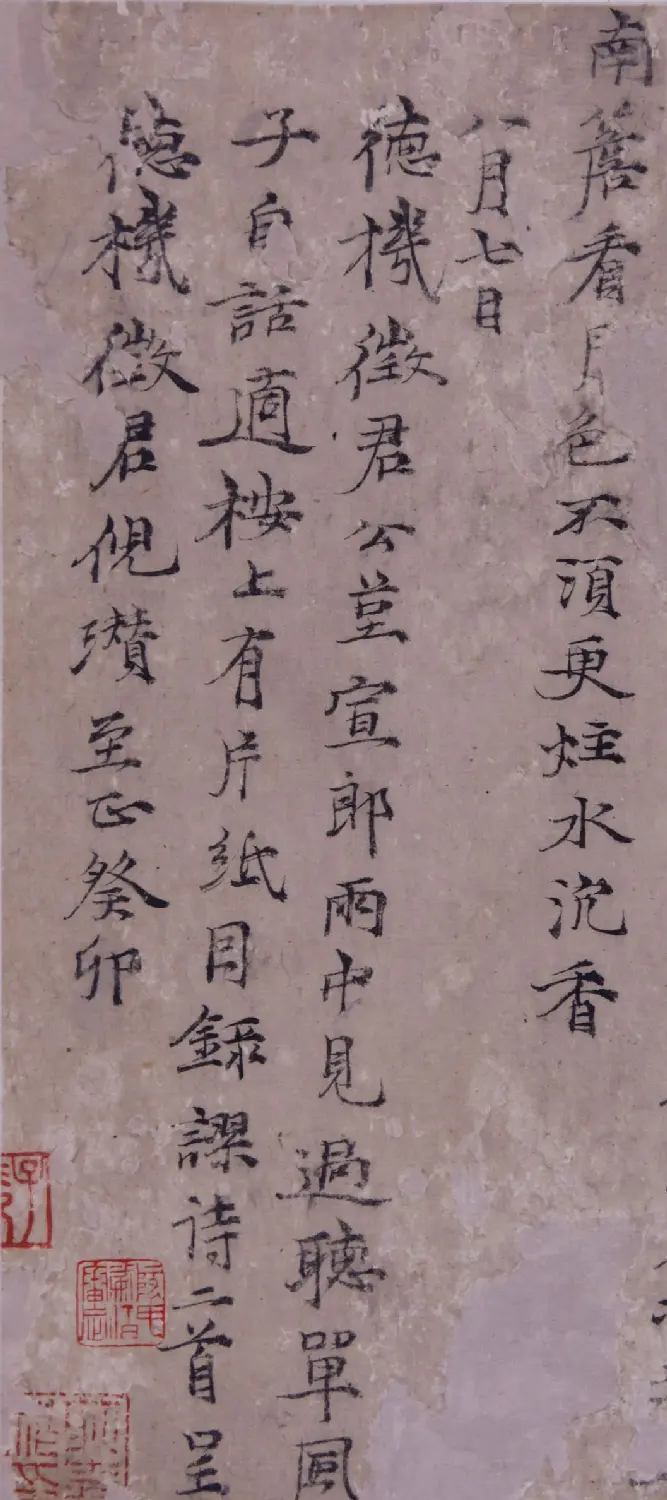 南簷看月色不須更炷水沉香
八月七日
德機徵君公莖宣郎雨中見過聽單同
子自話適桉上有片紙因錄謬詩二首呈
德機徵君倪瓚至正癸卯